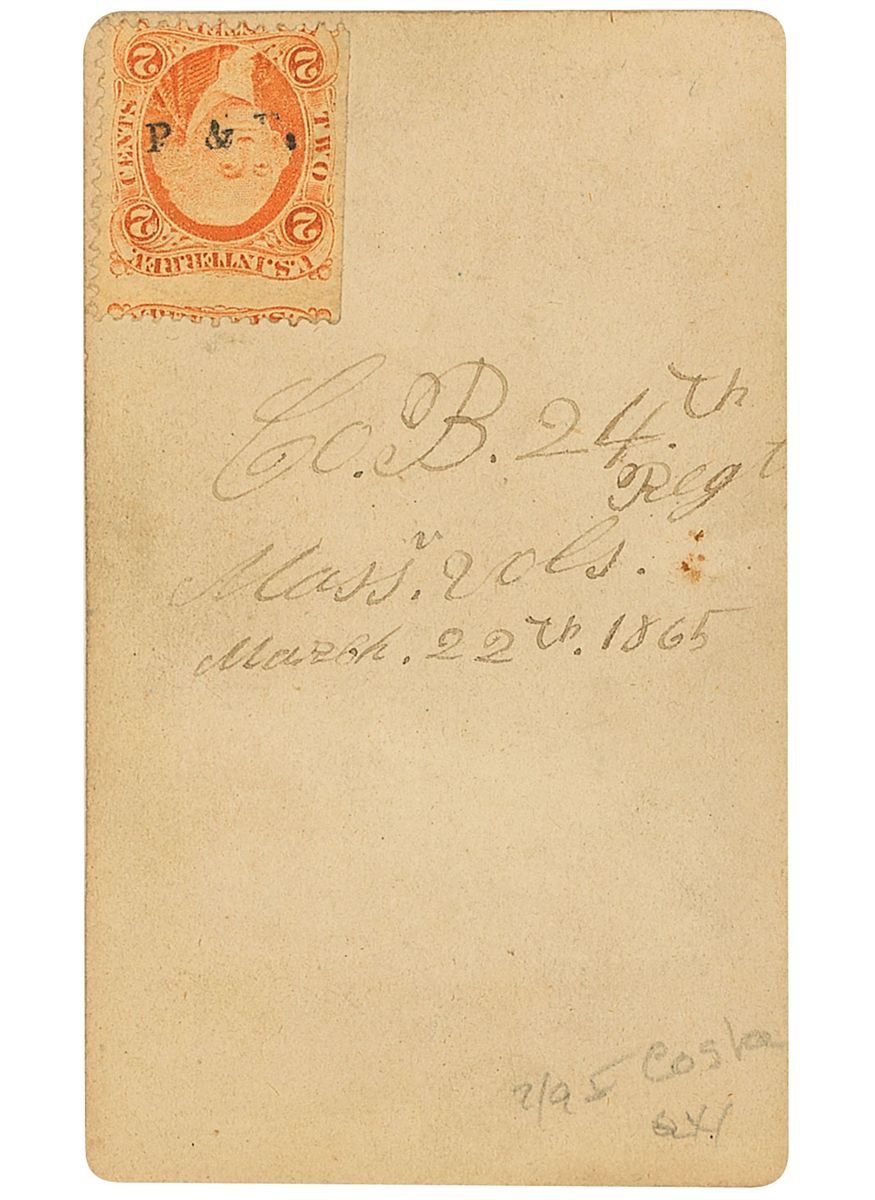 2 2
CENTS TWO
P &
2 2
U.S. INTER. REV.
Co. B. 24th.
Regt
Massr. vols.
March. 22th. 1865
2/95 Costa